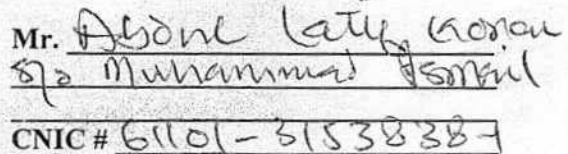 Mr. Abdul Latif
S/o Muhammad Ismail
CNIC # 61101-3153838-1